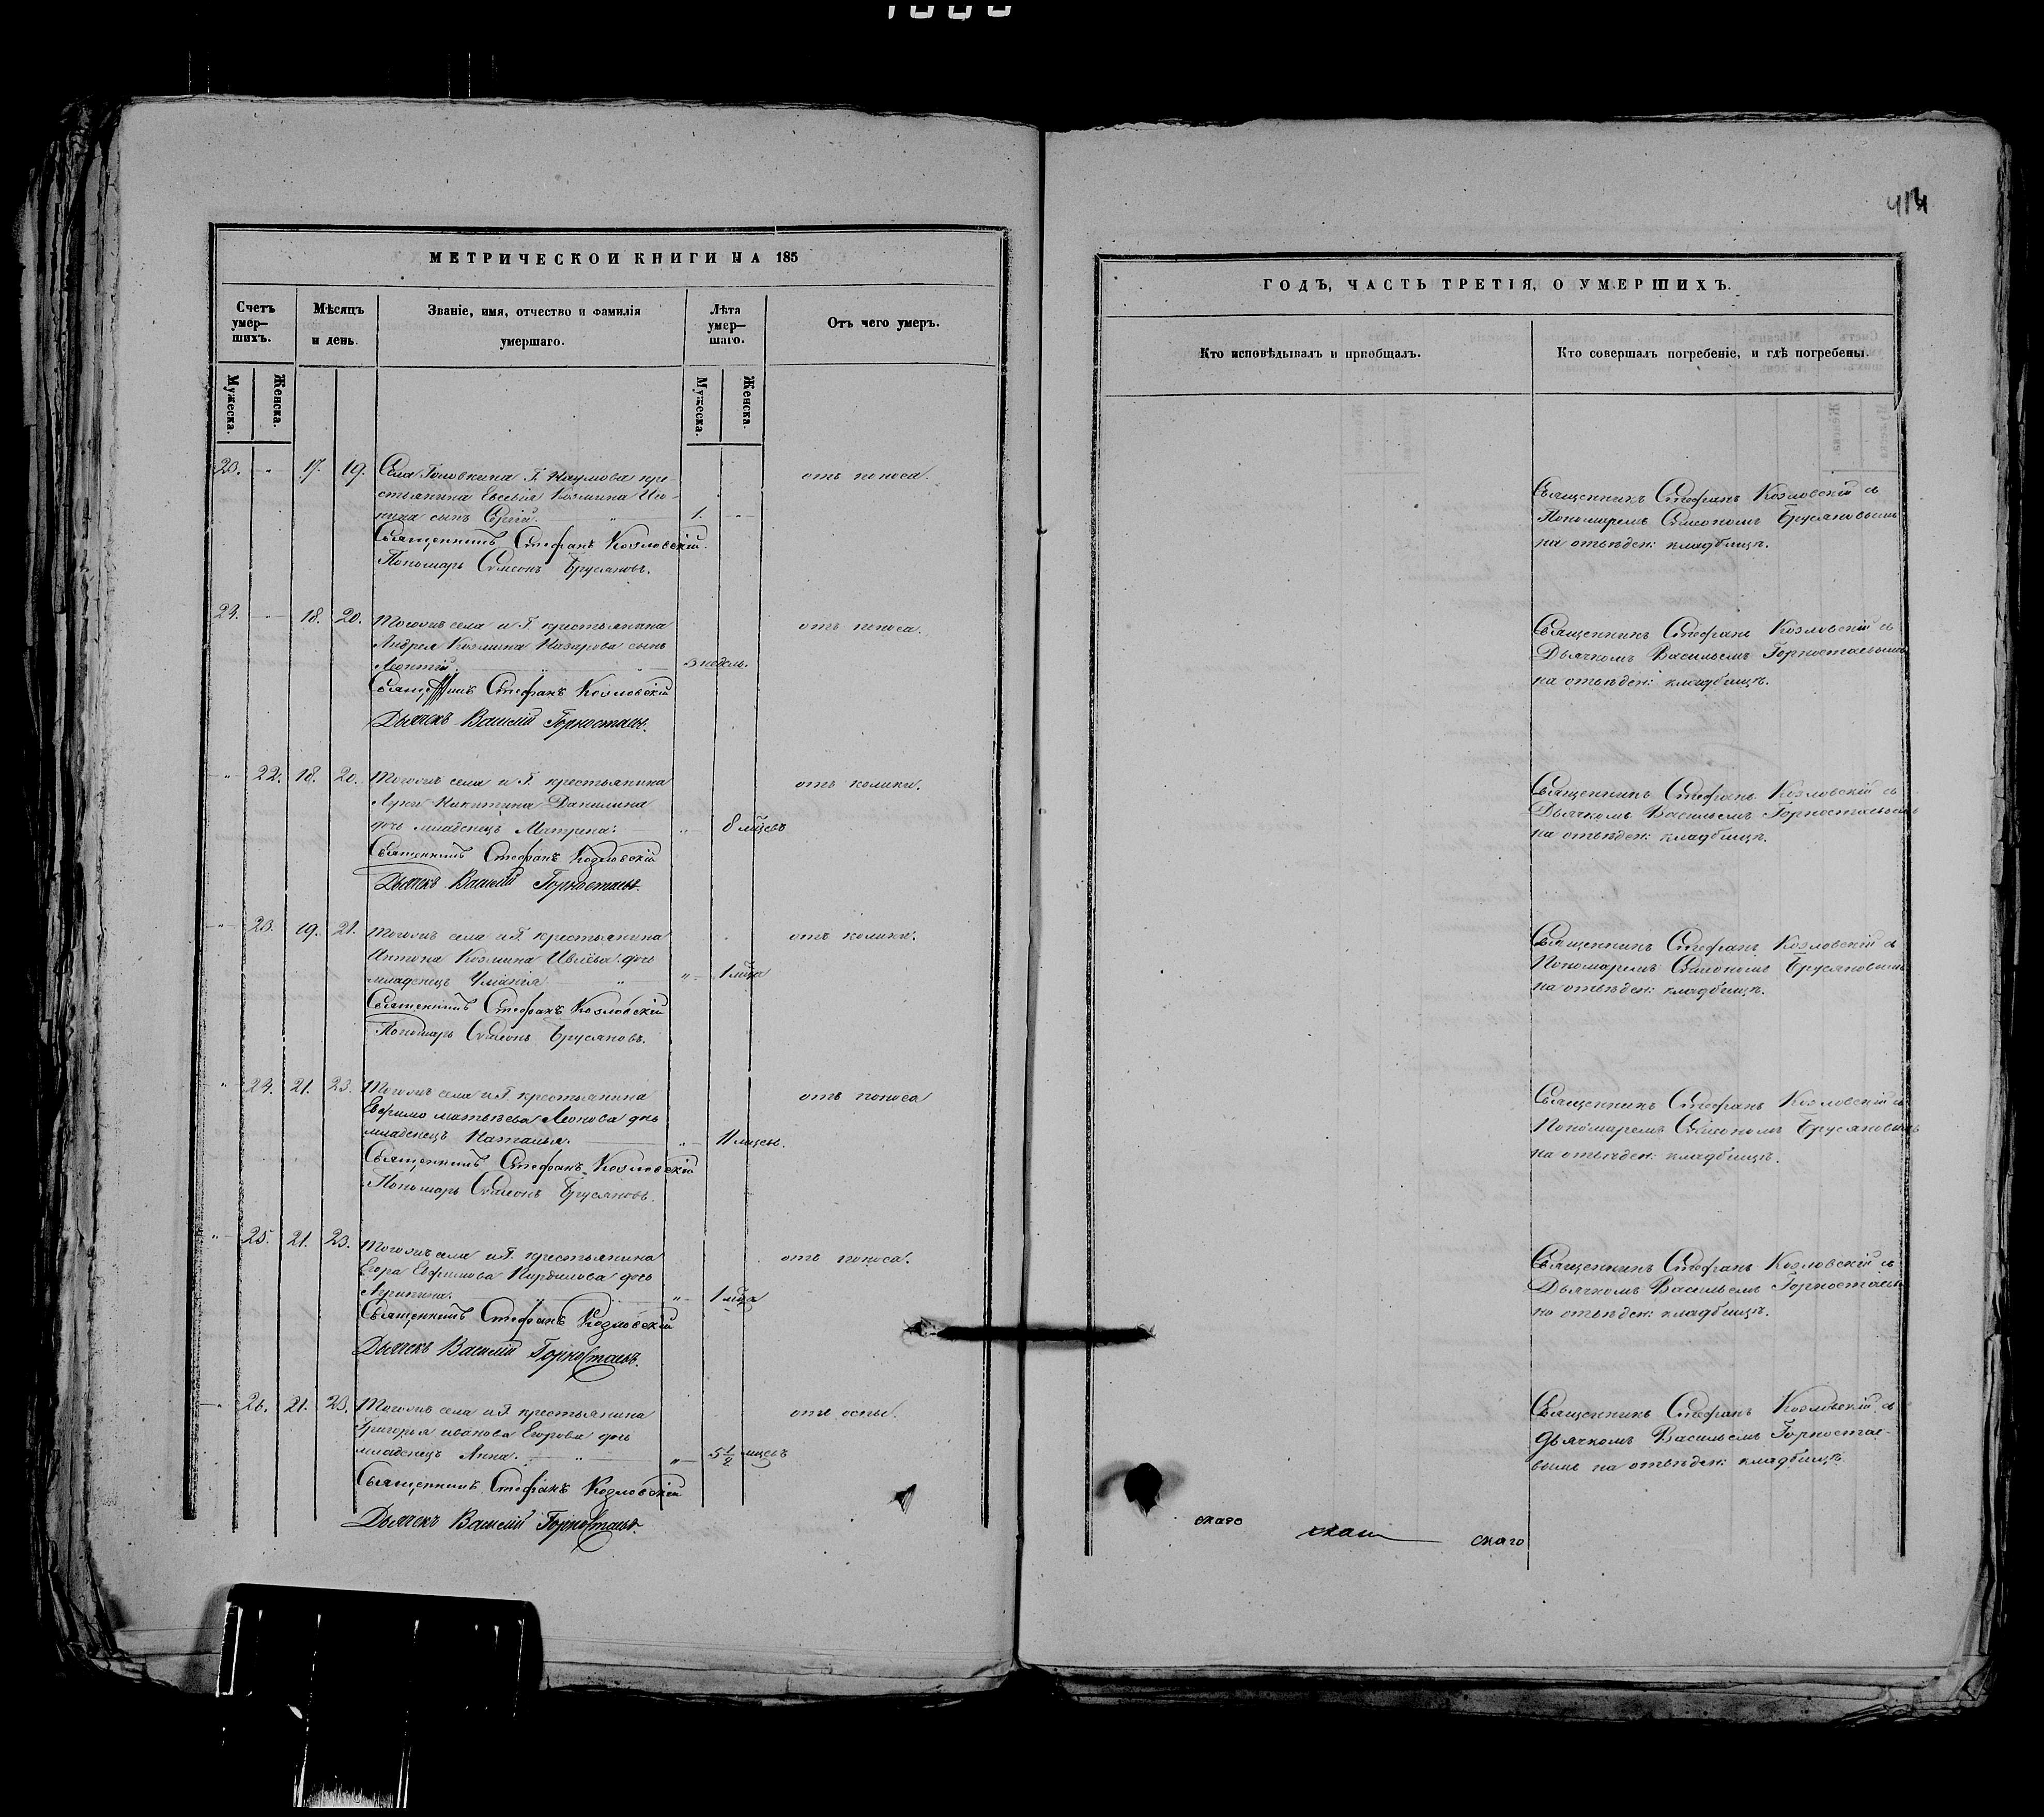 414
МЕТРИЧЕСКОЙ КНИГИ НА 185
Счетъ умер-шихъ.
Мѣсяцъ и день.
Званіе, имя, отчество и фамилія умершаго.
Лѣта умер-шаго.
Отъ чего умеръ.
Мужеска.
Женска.
Мужеска.
Женска.
23. 17. 19. Села Головкина Г. Наумова кре-
стьянина Евсевія Козмина
сынъ Сергій. 1. отъ поноса.
Священникъ Стефанъ Козловскій.
Пономарь Симеонъ Брусяновъ.
24. 18. 20. Тогожъ села и Г. крестьянина
Андрея Козмина Назарова сынъ
Леонтій. 3 недель. отъ поноса.
Священникъ Стефанъ Козловскій
Дьячекъ Василій Горностаевъ.
22. 18. 20. Тогожъ села и Г. крестьянина
Луки Никитина Данилина
дочь младенецъ Матрена. 8 мцевъ отъ колики.
Священникъ Стефанъ Козловскій
Дьячекъ Василій Горностаевъ.
23. 19. 21. Тогожъ села и Г. крестьянина
Антона Козмина Ивлева дочь
младенецъ Уліанія 1 мца отъ колики.
Священникъ Стефанъ Козловскій
Пономарь Симеонъ Брусяновъ.
24. 21. 23. Тогожъ села и Г. крестьянина
Ефима Матвѣева Леонова дочь
младенецъ Наталья. 11 мцевъ. отъ поноса
Священникъ Стефанъ Козловскій
Пономарь Симеонъ Брусяновъ.
25. 21. 23. Тогожъ села и Г. крестьянина
Егора Ефимова дочь
1 мца отъ поноса.
Священникъ Стефанъ Козловскій
Дьячекъ Василій Горностаевъ.
26. 21. 23. Тогожъ села и Г. крестьянина
Григорья Иванова Егорова дочь
младенецъ Анна. 5 1/2 мцевъ отъ оспы.
Священникъ Стефанъ Козловскій
Дьячекъ Василій Горностаевъ.
ГОДЪ, ЧАСТЬ ТРЕТІЯ, О УМЕРШИХЪ.
Кто исповѣдывалъ и пріобщалъ.
Кто совершалъ погребеніе, и гдѣ погребены.
Священникъ Стефанъ Козловскій съ
Пономаремъ Симеономъ Брусяновымъ
на отведен: кладбищѣ.
Священникъ Стефанъ Козловскій съ
Дьячкомъ Васильемъ Горностаевымъ
на отведен: кладбищѣ.
Священникъ Стефанъ Козловскій съ
Дьячкомъ Васильемъ Горностаевымъ
на отведен: кладбищѣ.
Священникъ Стефанъ Козловскій съ
Пономаремъ Симеономъ Брусяновымъ
на отведен: кладбищѣ.
Священникъ Стефанъ Козловскій съ
Пономаремъ Симеономъ Брусяновымъ
на отведен: кладбищѣ.
Священникъ Стефанъ Козловскій съ
Дьячкомъ Васильемъ Горностаевы
на отведен: кладбищѣ.
Священникъ Стефанъ Козловскій съ
дьячкомъ Васильемъ Горностае-
вымъ на отведен: кладбищѣ.
скаго
скаго